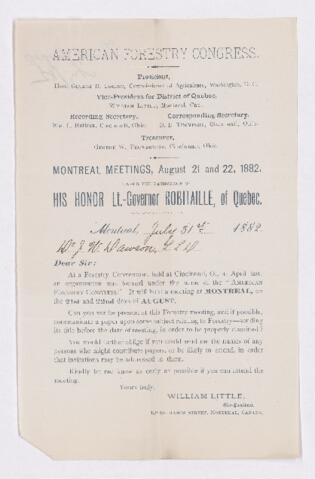 AMERICAN FORESTRY CONGRESS.
President,
Hon. George B. Loring, Commissioner of Agriculture, Washington, D. C.
Vice-President for District of Quebec,
William Little, Montreal, Que.
Recording Secretary. Corresponding Secretary.
Cincinnati, Ohio. Cincinnati, Ohio.
Treasurer,
Cincinnati, Ohio.
MONTREAL MEETINGS, August 21 and 22, 1882.
UNDER THE PATRONAGE OF
HIS HONOR Lt.-Governor ROBITAILLE, of Quebec.
Montreal, July 31st 1882
Dr J. W. Dawson, L.L.D.
Dear Sir:
At a Forestry Convention, held at Cincinnati, O., in April last,
an organization was formed under the name of the "AMERICAN
FORESTRY CONGRESS." It will hold a meeting at MONTREAL, on
the 21st and 22nd days of AUGUST.
Can you not be present at this Forestry meeting, and if possible,
communicate a paper upon some subject relating to Forestry—sending
its title before the date of meeting, in order to be properly classified?
You would further oblige if you could send me the names of any
persons who might contribute papers, or be likely to attend, in order
that invitations may be addressed to them.
Kindly let me know as early as possible if you can attend the
meeting.
Yours truly,
WILLIAM LITTLE,
Vice-President.
STREET, MONTREAL, CANADA.